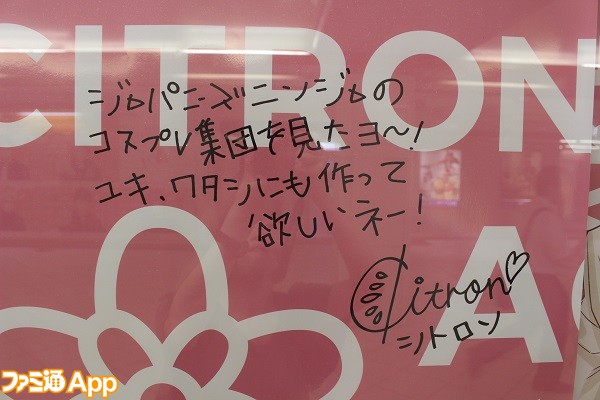 CITRON
ジャパニーズニンジャの
コスプレ集団を見たヨ～!
ユキ、ワタシにも作って
欲しいネー!
Citron♡
シトロン
A
ファミ通App